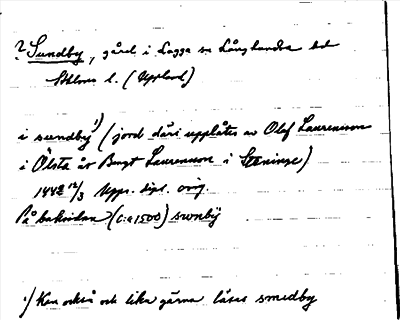 ? Sundby, gård i Lagga sn Långhundra hd
Sthlms l. (Uppland)
i sundby¹) (jord däri upplåtes av Olof Laurensson
i Ölsta åt Bengt Laurensson i Steninge)
1442 12/3 Upps. dipl. orig.
På baksidan (c:a 1500) swnby
¹) Kan också och lika gärna läsas smedby